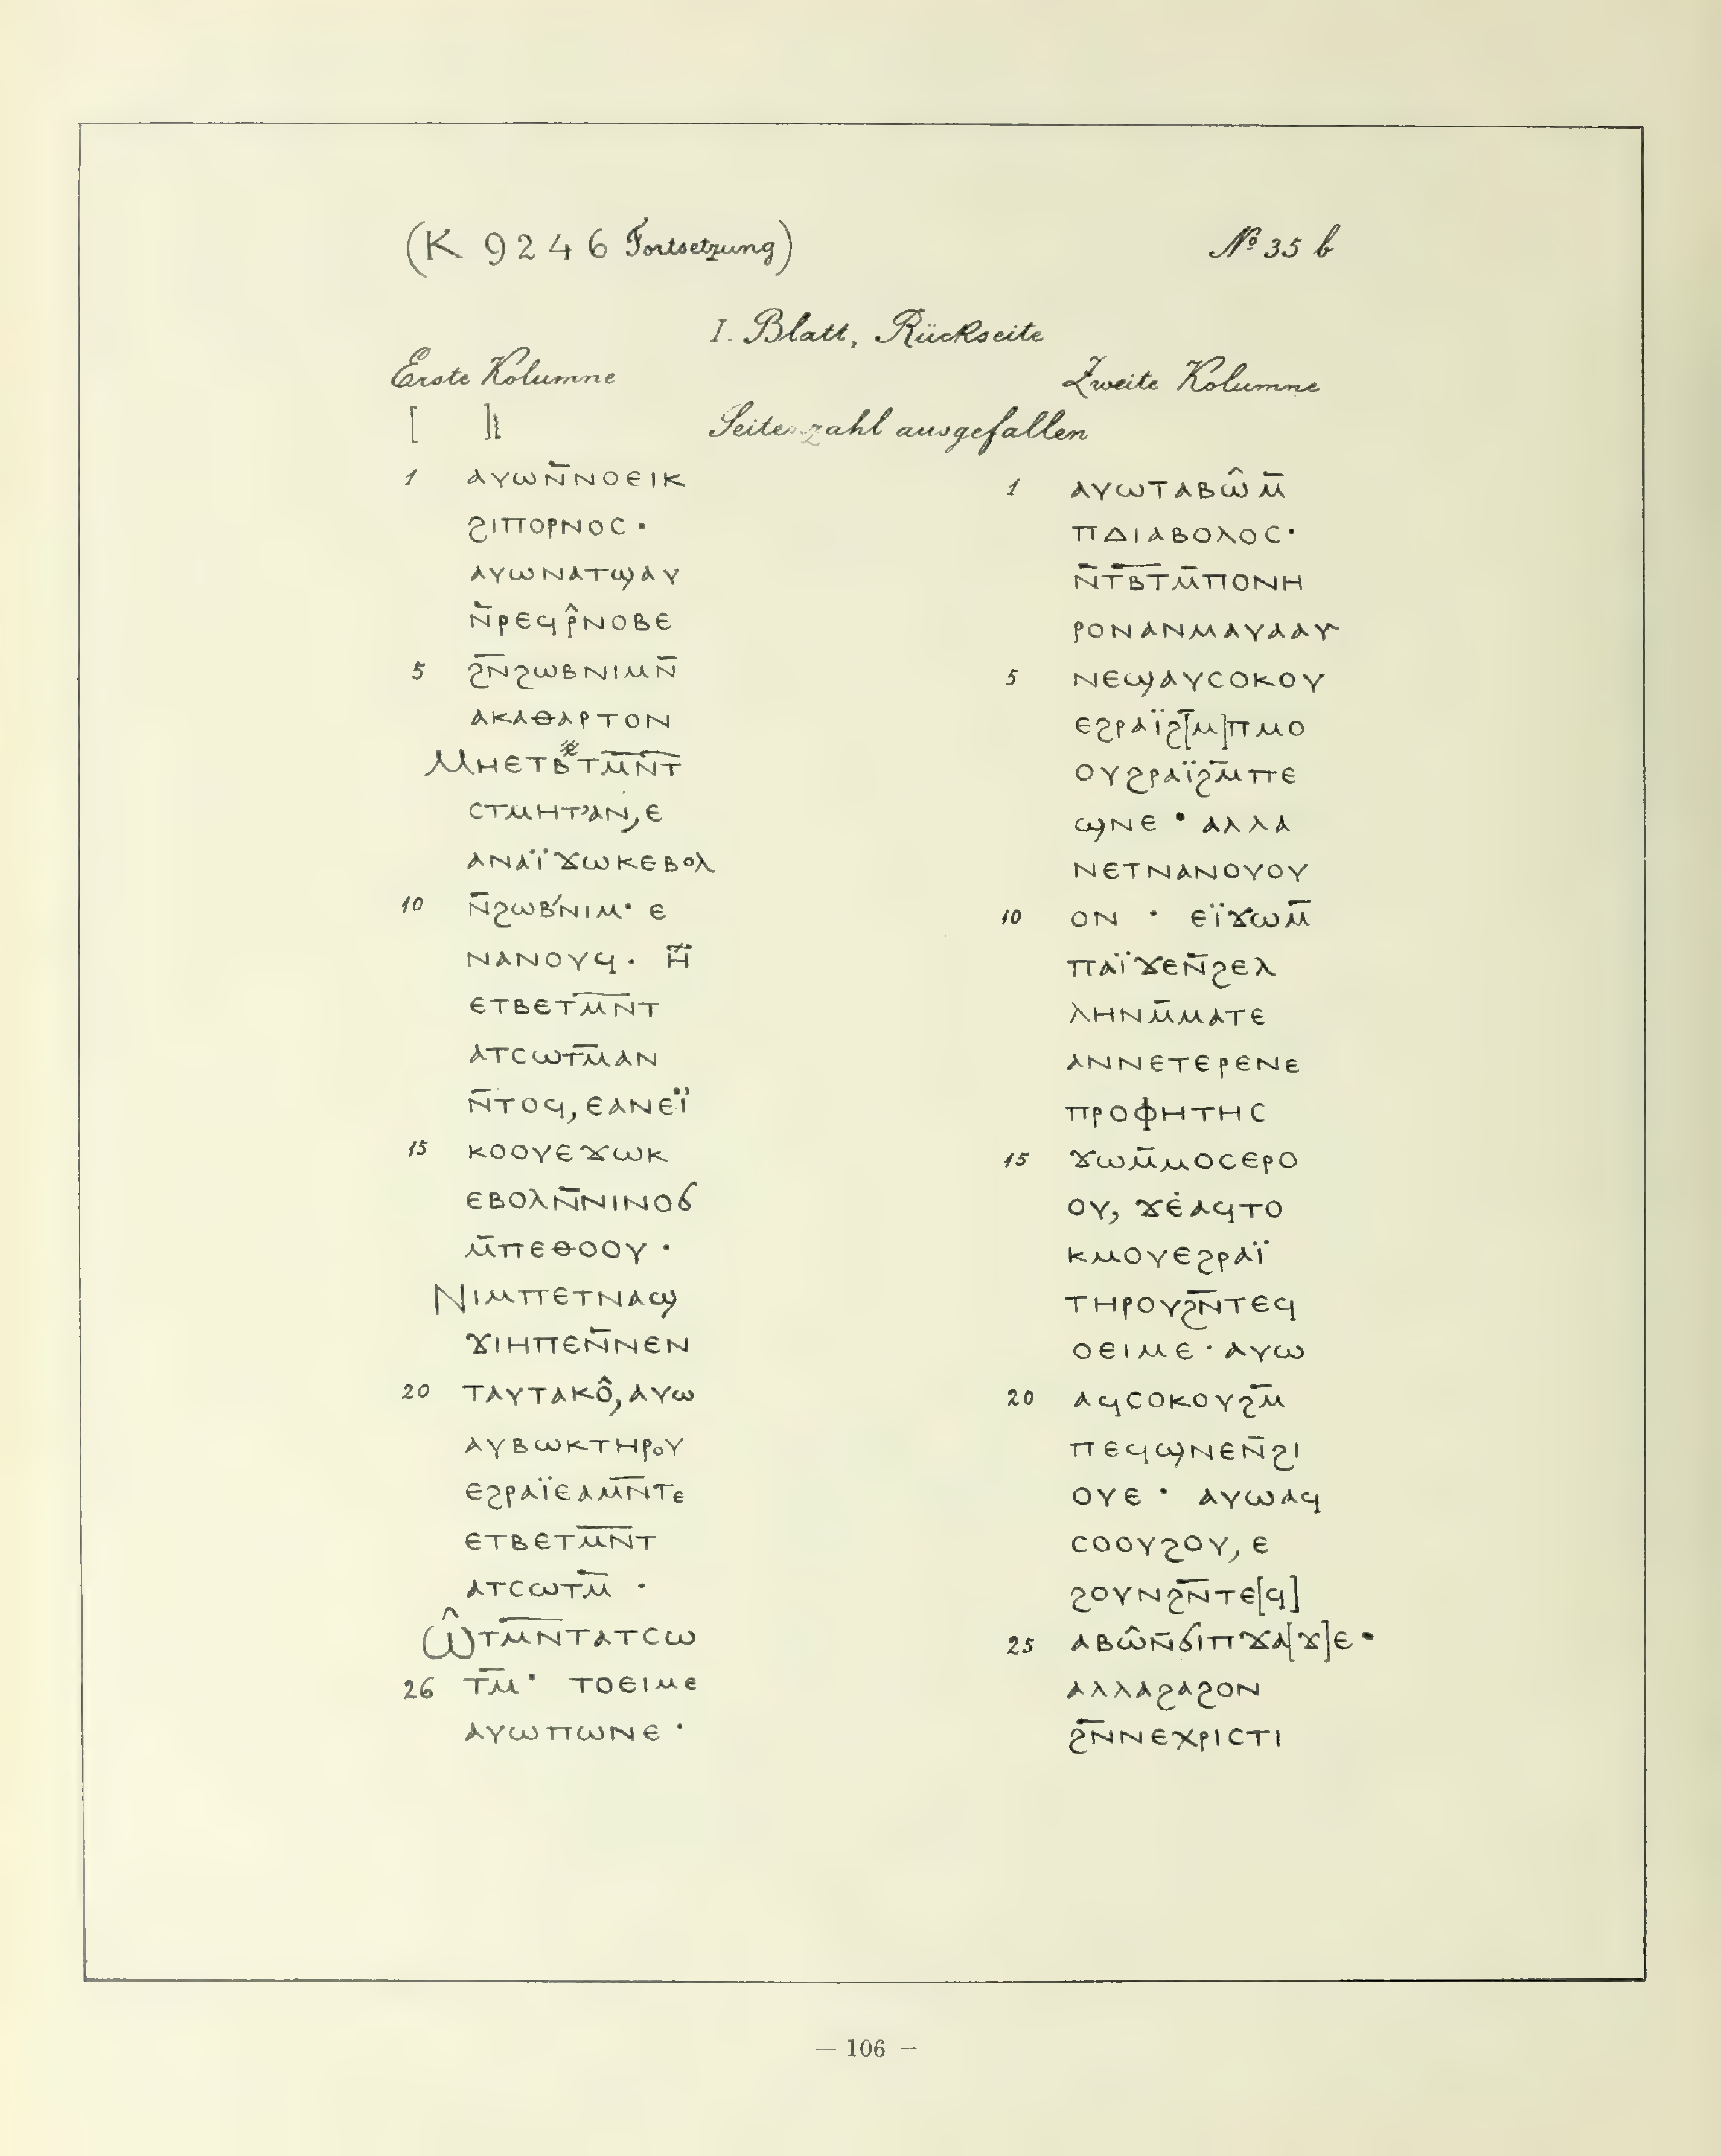 (K 9246 Fortsetzung)
№ 35 b
I. Blatt, Rückseite
Erste Kolumne
[ ]
Seitenzahl ausgefallen
1 ⲁⲩⲱⲛ̄ⲛⲟⲉⲓⲕ
ϩⲓⲡⲟⲣⲛⲟⲥ ·
ⲁⲩⲱⲛⲁⲧϣⲁⲩ
ⲛ̄ⲣⲉϥⲣ̂ⲛⲟⲃⲉ
5 ϩ̄ⲛ̄ϩⲱⲃⲛⲓⲙⲛ̄
ⲁⲕⲁⲑⲁⲣⲧⲟⲛ
Ⲙⲏⲉⲧⲃⲧⲙ̄ⲛ̄ⲧ̄
ⲥⲧⲙⲏⲧ’ⲁⲛ, ⲉ
ⲁⲛⲁⲓ̈ϫⲱⲕⲉⲃⲟⲗ
10 ⲛ̄ϩⲱⲃ'ⲛⲓⲙ· ⲉ
ⲛⲁⲛⲟⲩϥ · ⲏ̄
ⲉⲧⲃⲉⲧⲙ̄ⲛ̄ⲧ
ⲁⲧⲥⲱⲧ̄ⲙ̄ⲁⲛ
ⲛ̄ⲧⲟϥ, ⲉⲁⲛⲉⲓ̈
15 ⲕⲟⲟⲩⲉϫⲱⲕ
ⲉⲃⲟⲗⲛ̄ⲛⲓⲛⲟϭ
ⲙ̄ⲡⲉⲑⲟⲟⲩ ·
Ⲛⲓⲙⲡⲉⲧⲛⲁϣ
ϫⲓⲏⲡⲉⲛ̄ⲛⲉⲛ
20 ⲧⲁⲩⲧⲁⲕⲟ̂, ⲁⲩⲱ
ⲁⲩⲃⲱⲕⲧⲏⲣⲟⲩ
ⲉϩⲣⲁⲓ̈ⲉⲁⲙ̄ⲛ̄ⲧⲉ
ⲉⲧⲃⲉⲧⲙ̄ⲛ̄ⲧ
ⲁⲧⲥⲱⲧ̄ⲙ̄ ·
Ⲱ̂ⲧⲙ̄ⲛ̄ⲧⲁⲧⲥⲱ
26 ⲧ̄ⲙ̄· ⲧⲟⲉⲓⲙⲉ
ⲁⲩⲱⲡⲱⲛⲉ ·
Zweite Kolumne
1 ⲁⲩⲱⲧⲁⲃⲱ̂ⲙ̄
ⲡⲇⲓⲁⲃⲟⲗⲟⲥ·
ⲛ̄ⲧ̄ⲃ̄ⲧⲙ̄ⲡⲟⲛⲏ
ⲣⲟⲛⲁⲛⲙⲁⲩⲁⲁⲩ
5 ⲛⲉϣⲁⲩⲥⲟⲕⲟⲩ
ⲉϩⲣⲁⲓ̈ϩ̄[ⲙ̄]ⲡⲙⲟ
ⲟⲩϩⲣⲁⲓ̈ϩ̄ⲙ̄ⲡⲉ
ϣⲛⲉ · ⲁⲗⲗⲁ
ⲛⲉⲧⲛⲁⲛⲟⲩⲟⲩ
10 ⲟⲛ · ⲉⲓ̈ϫⲱⲙ̄
ⲡⲁⲓ̈ϫⲉⲛ̄ϩⲉⲗ
ⲗⲏⲛⲙ̄ⲙⲁⲧⲉ
ⲁⲛⲛⲉⲧⲉⲣⲉⲛⲉ
ⲡⲣⲟⲫⲏⲧⲏⲥ
15 ϫⲱⲙ̄ⲙⲟⲥⲉⲣⲟ
ⲟⲩ, ϫⲉ̇ⲁϥⲧⲟ
ⲕⲙⲟⲩⲉϩⲣⲁⲓ̈
ⲧⲏⲣⲟⲩϩ̄ⲛ̄ⲧⲉϥ
ⲟⲉⲓⲙⲉ · ⲁⲩⲱ
20 ⲁϥⲥⲟⲕⲟⲩϩ̄ⲙ̄
ⲡⲉϥϣⲛⲉⲛ̄ϩⲓ
ⲟⲩⲉ · ⲁⲩⲱⲁϥ
ⲥⲟⲟⲩϩⲟⲩ, ⲉ
ϩⲟⲩⲛϩ̄ⲛ̄ⲧⲉ[ϥ]
25 ⲁⲃⲱ̂ⲛ̄ϭⲓⲡϫⲁ[ϫ]ⲉ ·
ⲁⲗⲗⲁϩⲁϩⲟⲛ
ϩ̄ⲛ̄ⲛⲉⲭⲣⲓⲥⲧⲓ
— 106 —